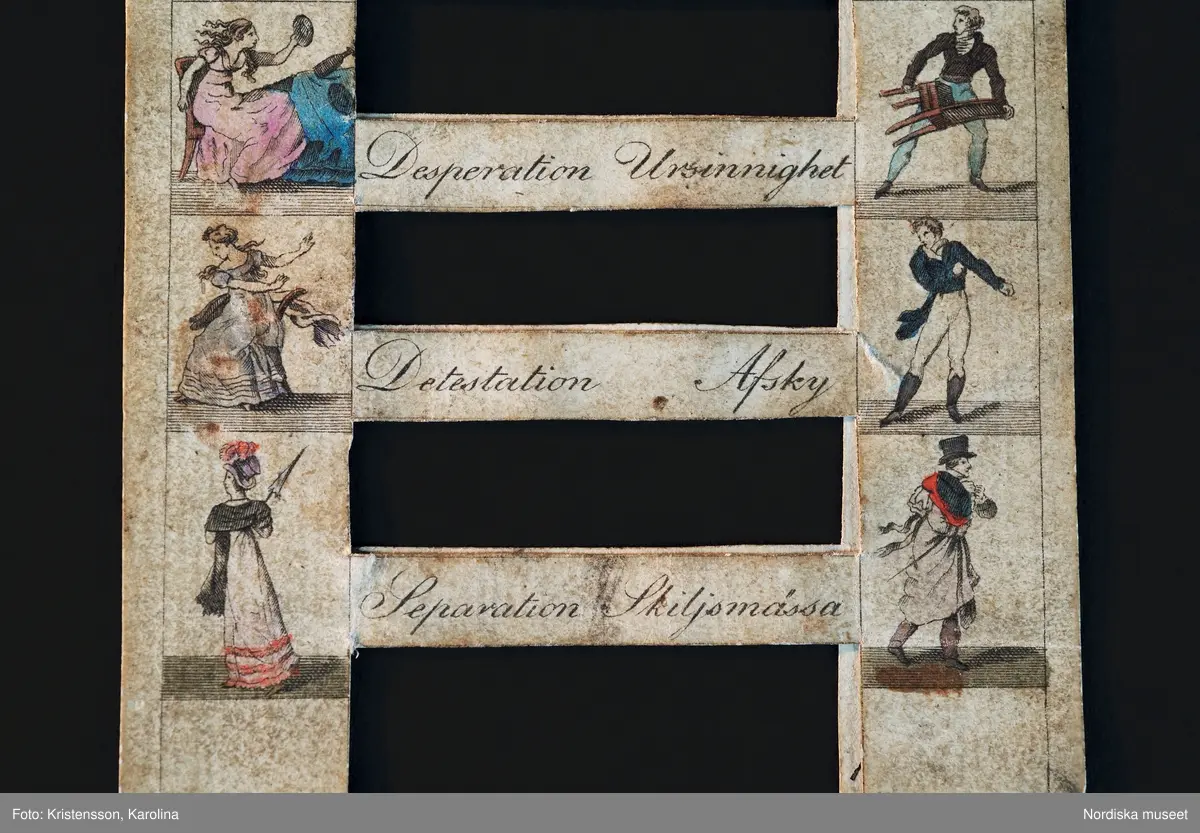 Desperation Ursinnighet
Detestation Afsky
Separation Skiljsmässa
Foto: Kristensson, Karolina
Nordiska museet